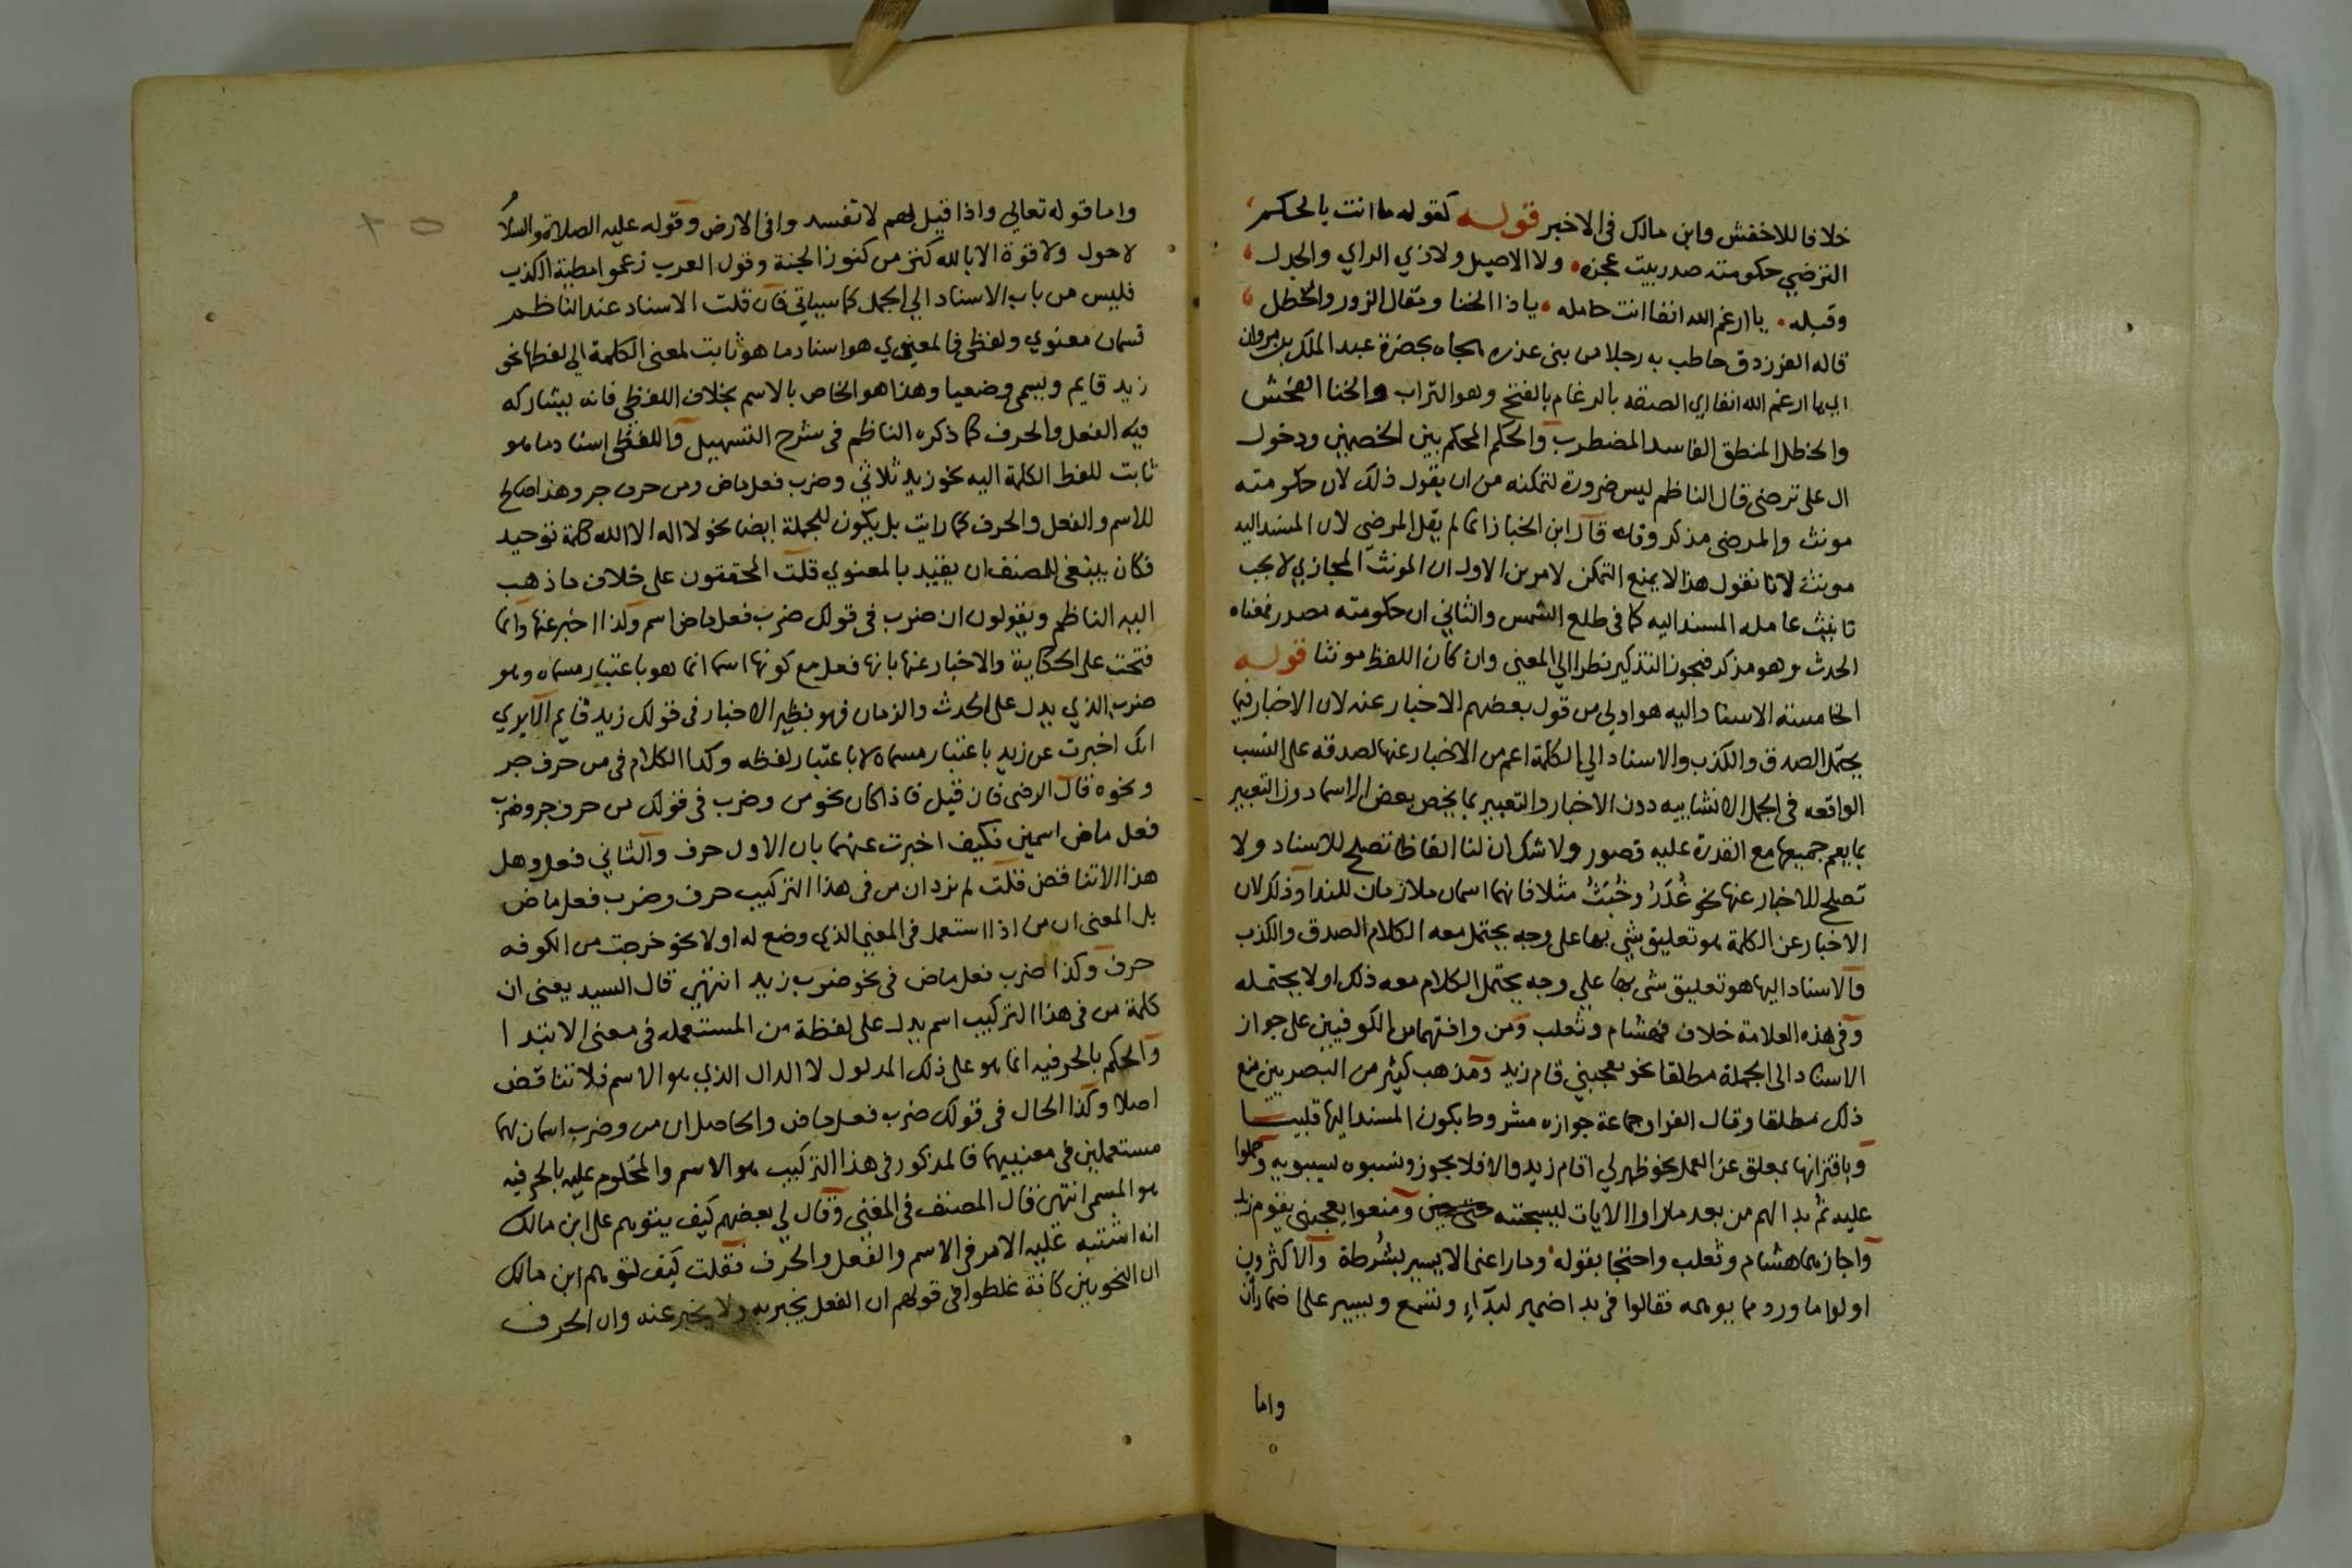 خلافا للاخفش وابن مالك فى الاخير قوله كقوله ما انت بالحكم
الترضي حكومته صدر بيت عجزه ولا الاصيل ولا ذي الراي والجدل
وقبله يا ارغم الله انفا انت حامله يا ذا الخنا ومقال الزور والخطل
قاله الفرزدق خاطب به رجلا من بنى عذره هجاه بحضرة عبد الملك بن مروان
اي يا ارغم الله انفا اي الصقه بالرغام بالفتح وهو التراب والخنا الفحش
والخطل المنطق الفاسد المضطرب والحكم المحكم بين الخصمين ودخول
ال على ترضى قال الناظم ليس ضرورة لتمكنه من ان يقول ذلك لان حكومته
مونث والمرضى مذكر وقال قال ابن الخباز انما لم يقل المرضي لان المسند اليه
مونث لانا نقول هذا لا يمنع التمكن لامرين الاول ان المونث المجازي لا يجب
تانيث عامله المسند اليه كما فى طلع الشمس والثاني ان حكومته مصدر فمعناه
الحدث وهو مذكر فيجوز التذكير نظرا الي المعني وان كان اللفظ مونثا قوله
الخامسة الاسناد اليه هو اولي من قول بعضهم الاخبار عنه لان الاخبار فيما
يحتمل الصدق والكذب والاسناد الي الكلمة اعم من الاخبار عنها لصدقه على النسب
الواقعه فى الجمل الانشاييه دون الاخبار والتعبير بما يخص بعض الاسما دون التعبير
بما يعم جميعها مع القدرة عليه قصور ولا شك ان لنا الفاظا تصلح للاسناد ولا
تصلح للاخبار عنها نحو غُدَرُ وخُبَثُ مثلا فانهما اسمان ملازمان للندا وذلك لان
الاخبار عن الكلمة هو تعليق شي بها على وجه يحتمل معه الكلام الصدق والكذب
والاسناد اليها هو تعليق شى بها علي وجه يحتمل الكلام معه ذلك او لا يحتمله
وفى هذه العلامة خلاف فهشام وثعلب ومن وافقهما من الكوفيين على جواز
الاسناد الى الجملة مطلقا نحو يعجبني قام زيد ومذهب كثير من البصريين منع
ذلك مطلقا وقال الفرا وجماعة جوازه مشروط بكون المسند اليها قلبيا
وباقترانها بمعلق عن العمل نحو ظهر لي اقام زيد والا فلا يجوز ونسبوه لسيبويه وحملوا
عليه ثم بدا لهم من بعد ما راوا الايات ليسجننه حتى حين ومنعوا يعجبنى يقوم زيد
واجازهما هشام وثعلب واحتجا بقوله وما راعنى الا يسير بشُرطة والاكثرون
اولوا ما ورد مما يوهمه فقالوا فى بدا ضمير لبدآء وتسمع ويسير على اضمار أن
واما
واما قوله تعالي واذا قيل لهم لا تفسدوا فى الارض وقوله عليه الصلاة والسلام
لا حول ولا قوة الا بالله كنز من كنوز الجنة وقول العرب زعموا مطية الكذب
فليس من باب الاسناد الي الجمل كما سياتي فان قلت الاسناد عند الناظم
قسمان معنوي ولفظى فالمعنوي هو اسناد ما هو ثابت لمعنى الكلمة الي لفظها نحو
زيد قايم ويسمى وضعيا وهذا هو الخاص بالاسم بخلاف اللفظي فانه يشاركه
فيه الفعل والحرف كما ذكره الناظم فى شرح التسهيل واللفظى اسناد ما هو
ثابت للفظ الكلمة اليه نحو زيد ثلاثي وضرب فعل ماض ومن حرف جر وهذا صالح
للاسم والفعل والحرف كما رايت بل يكون للجملة ايضا نحو لا اله الا الله كلمة توحيد
فكان ينبغى للمصنف ان يقيد بالمعنوي قلت المحققون على خلاف ما ذهب
اليه الناظم ويقولون ان ضرب فى قولك ضرب فعل ماض اسم ولذا اخبر عنها وانما
فتحت على الحكاية والاخبار عنها بانها فعل مع كونها اسما انما هو باعتبار مسماه وهو
ضرب الذي يدل على الحدث والزمان فهو نظير الاخبار فى قولك زيد قايم الا يري
انك اخبرت عن زيد باعتبار مسماه لا باعتبار لفظه وكذا الكلام فى من حرف جر
ونحوه قال الرضى فان قيل فاذا كان نحو من وضرب فى قولك من حرف جر وضرب
فعل ماض اسمين فكيف اخبرت عنهما بان الاول حرف والثاني فعل وهل
هذا الا تناقض قلت لم نرد ان من فى هذا التركيب حرف وضرب فعل ماض
بل المعنى ان من اذا استعمل فى المعني الذي وضع له اولا نحو خرجت من الكوفه
حرف وكذا ضرب فعل ماض فى نحو ضرب زيد انتهى قال السيد يعنى ان
كلمة من فى هذا التركيب اسم يدل على لفظة من المستعمله فى معنى الابتدا
والحكم بالحرفيه انما هو على ذلك المدلول لا الدال الذي هو الاسم فلا تناقض
اصلا وكذا الحال فى قولك ضرب فعل ماض والحاصل ان من وضرب اسمان لهما
مستعملين فى معنييهما فالمذكور فى هذا التركيب هو الاسم والمحكوم عليه بالحرفيه
هو المسمى انتهى قال المصنف فى المغني وقال لي بعضهم كيف يتوهم على ابن مالك
انه اشتبه عليه الامر فى الاسم والفعل والحرف فقلت كيف لتوهم ابن مالك
ان النحويين كافة غلطوا فى قولهم ان الفعل يخبر به ولا يخبر عنه وان الحرف